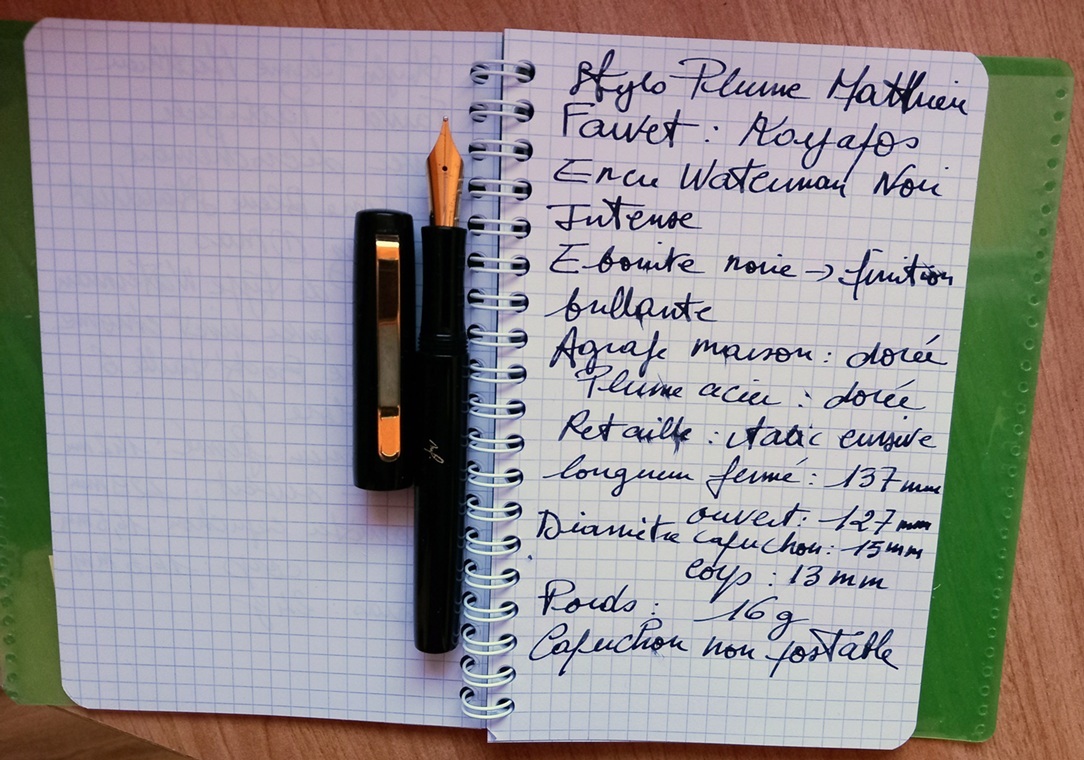 Stylo Plume Matthieu
Fauvet : Kayafos
Encre Waterman Noir
Intense
Ebonite noire → finition
brillante
Agrafe maison : dorée
Plume acier : dorée
Retaille : italic cursive
longueur fermé : 137 mm
ouvert : 127 mm
Diamètre capuchon : 15 mm
corps : 13 mm
Poids : 16 g
Capuchon non postable